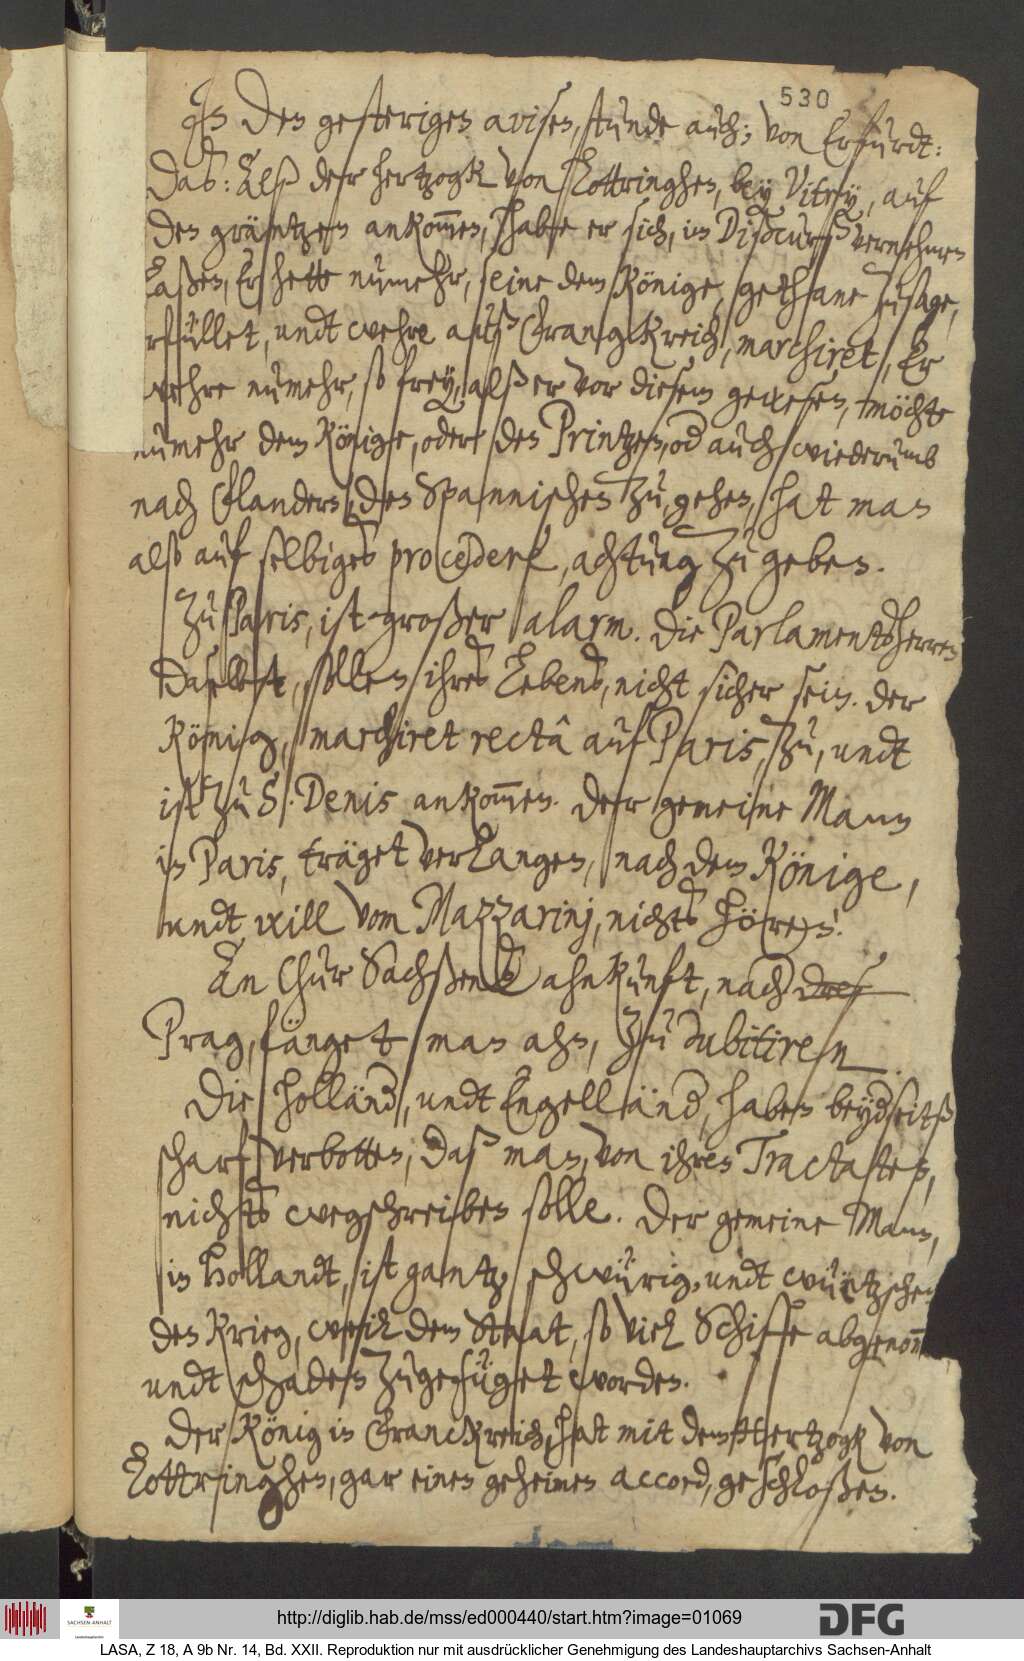 530
In den gesterigen avisen, stunde auch, von Erfurdt:
das: Alß der Hertzogk von Lottringhen, bey Vitry, auf
den gräntzen ankom̅en, habe er sich, in Discurß vernehmen
Laßen, Er hette numehr, seine dem Könige, gethane zusage,
rfüllet, undt wehre auß Franckreich, marchiret, Er
wehre numehr, so frey, alß er vor diesem gewesen, möchte
numehr dem Könige, oder den Printzen, od auch wiederumb
nach Flandern, den Spannischen zu, gehen, hat man
also auf selbiges procedere, achtung zu geben.
Zu Paris, ist großer alarm. Die Parlamentsherren
daselbst, sollen ihres Lebens, nicht sicher sein. Der
König, marchiret rectâ auf Paris, zu, undt
ist zu S. Denis ankom̅en. Der gemeine Mann
in Paris, träget verlangen, nach dem Könige,
undt will vom Mazzarinj, nichts hören!
An Chur Sachßens ahnkunft, nach
Prag, fänget man ahn, zu dubitiren.
Die Holländ, undt Engelländ, haben beydseitß
scharf verbotten, daß man, von ihren Tractaten,
nichts wegschreiben solle. Der gemeine Mann,
in Hollandt, ist gantz schwürig, undt wüntzschen
den Krieg, weil dem Staat, so viel Schiffe abgenom̅
undt schaden zugefüget worden.
Der König in Franckreich, hat mit dem Hertzogk von
Lottringhen, gar einen geheimen accord, geschloßen.
http://diglib.hab.de/mss/ed000440/start.htm?image=01069
SACHSEN-ANHALT
DFG
LASA, Z 18, A 9b Nr. 14, Bd. XXII. Reproduktion nur mit ausdrücklicher Genehmigung des Landeshauptarchivs Sachsen-Anhalt